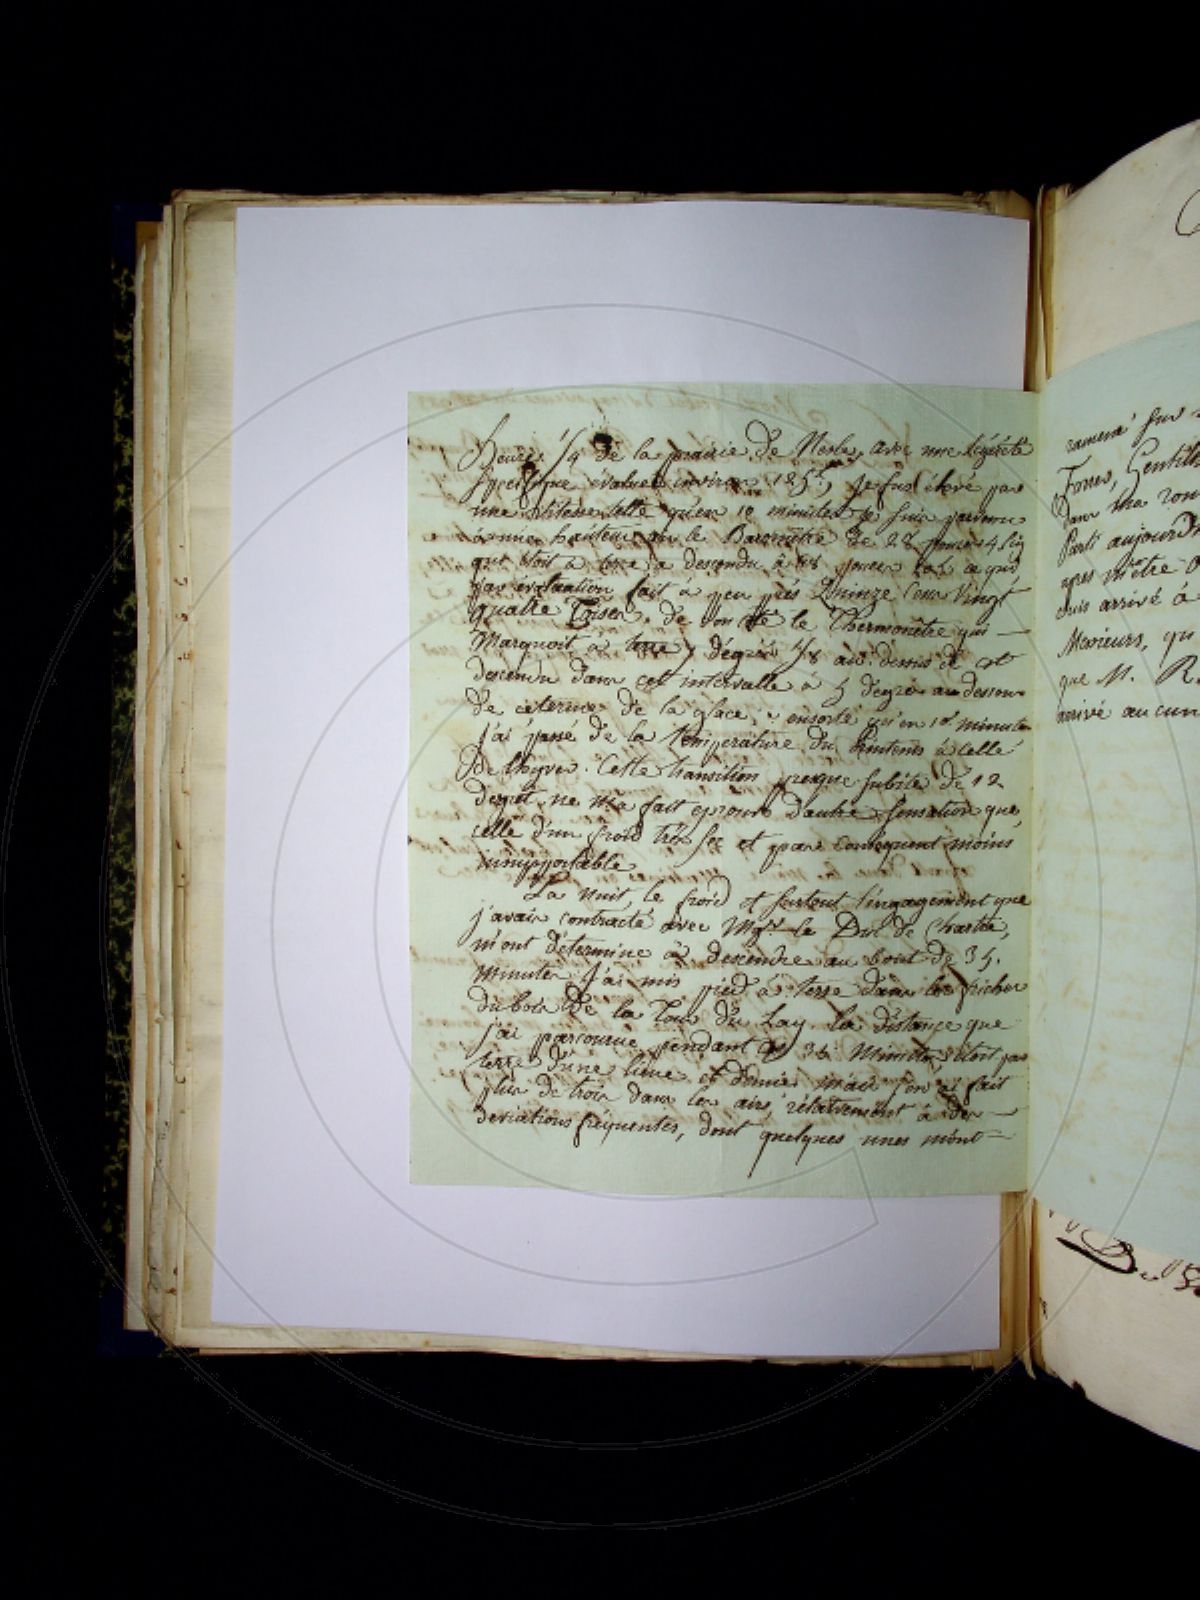 heures 1/4 de la prairie de Nesle, avec une légéreté
spécifique évaluée environ 125 ℔, je fus élevé par
une vitesse telle qu'en 10 minutes je suis parvenu
à une hauteur ou le Baromètre de 28 pouces 4 lig
qui étoit à terre a descendu à 18 pouces ce qui
par évaluation fait à peu près Quinze Cent Vingt
quatre Toises. de son côté le Thermomètre qui —
Marquoit à terre 7 dégrés au dessus de est
descendu dans cet intervalle à 5 degrés au dessous
de ce terme de la glace; ensorte qu'en 10 minutes
j'ai passé de la température du Printems à celle
De lhyver. Cette transition presque subite de 12
degrés ne m'a fait eprouver d'autre sensation que
celle d'un froid très sec et par conséquent moins
insupportable
La nuit, le froid et surtout l'engagement que
j'avais contracté avec Mgr. le Duc de Chartre,
m'ont déterminé à descendre au bout de 35.
minutes J'ai mis pied à terre dans les friches
du bois de la Tour du Lay la distance que
j'ai parcourue pendant 35 Minutes, étoit par
terre d'une lieue et demie mais j'en ai fait
plus de trois dans les airs, rélativement à des —
deviations fréquentes, dont quelques unes m'ont —
ramené sur
Forces, Gentilh
dans ma rou
Parti aujourd'h
apres m'être
suis arrivé à
Messieurs, qui
que M. R.
arrivé aucun